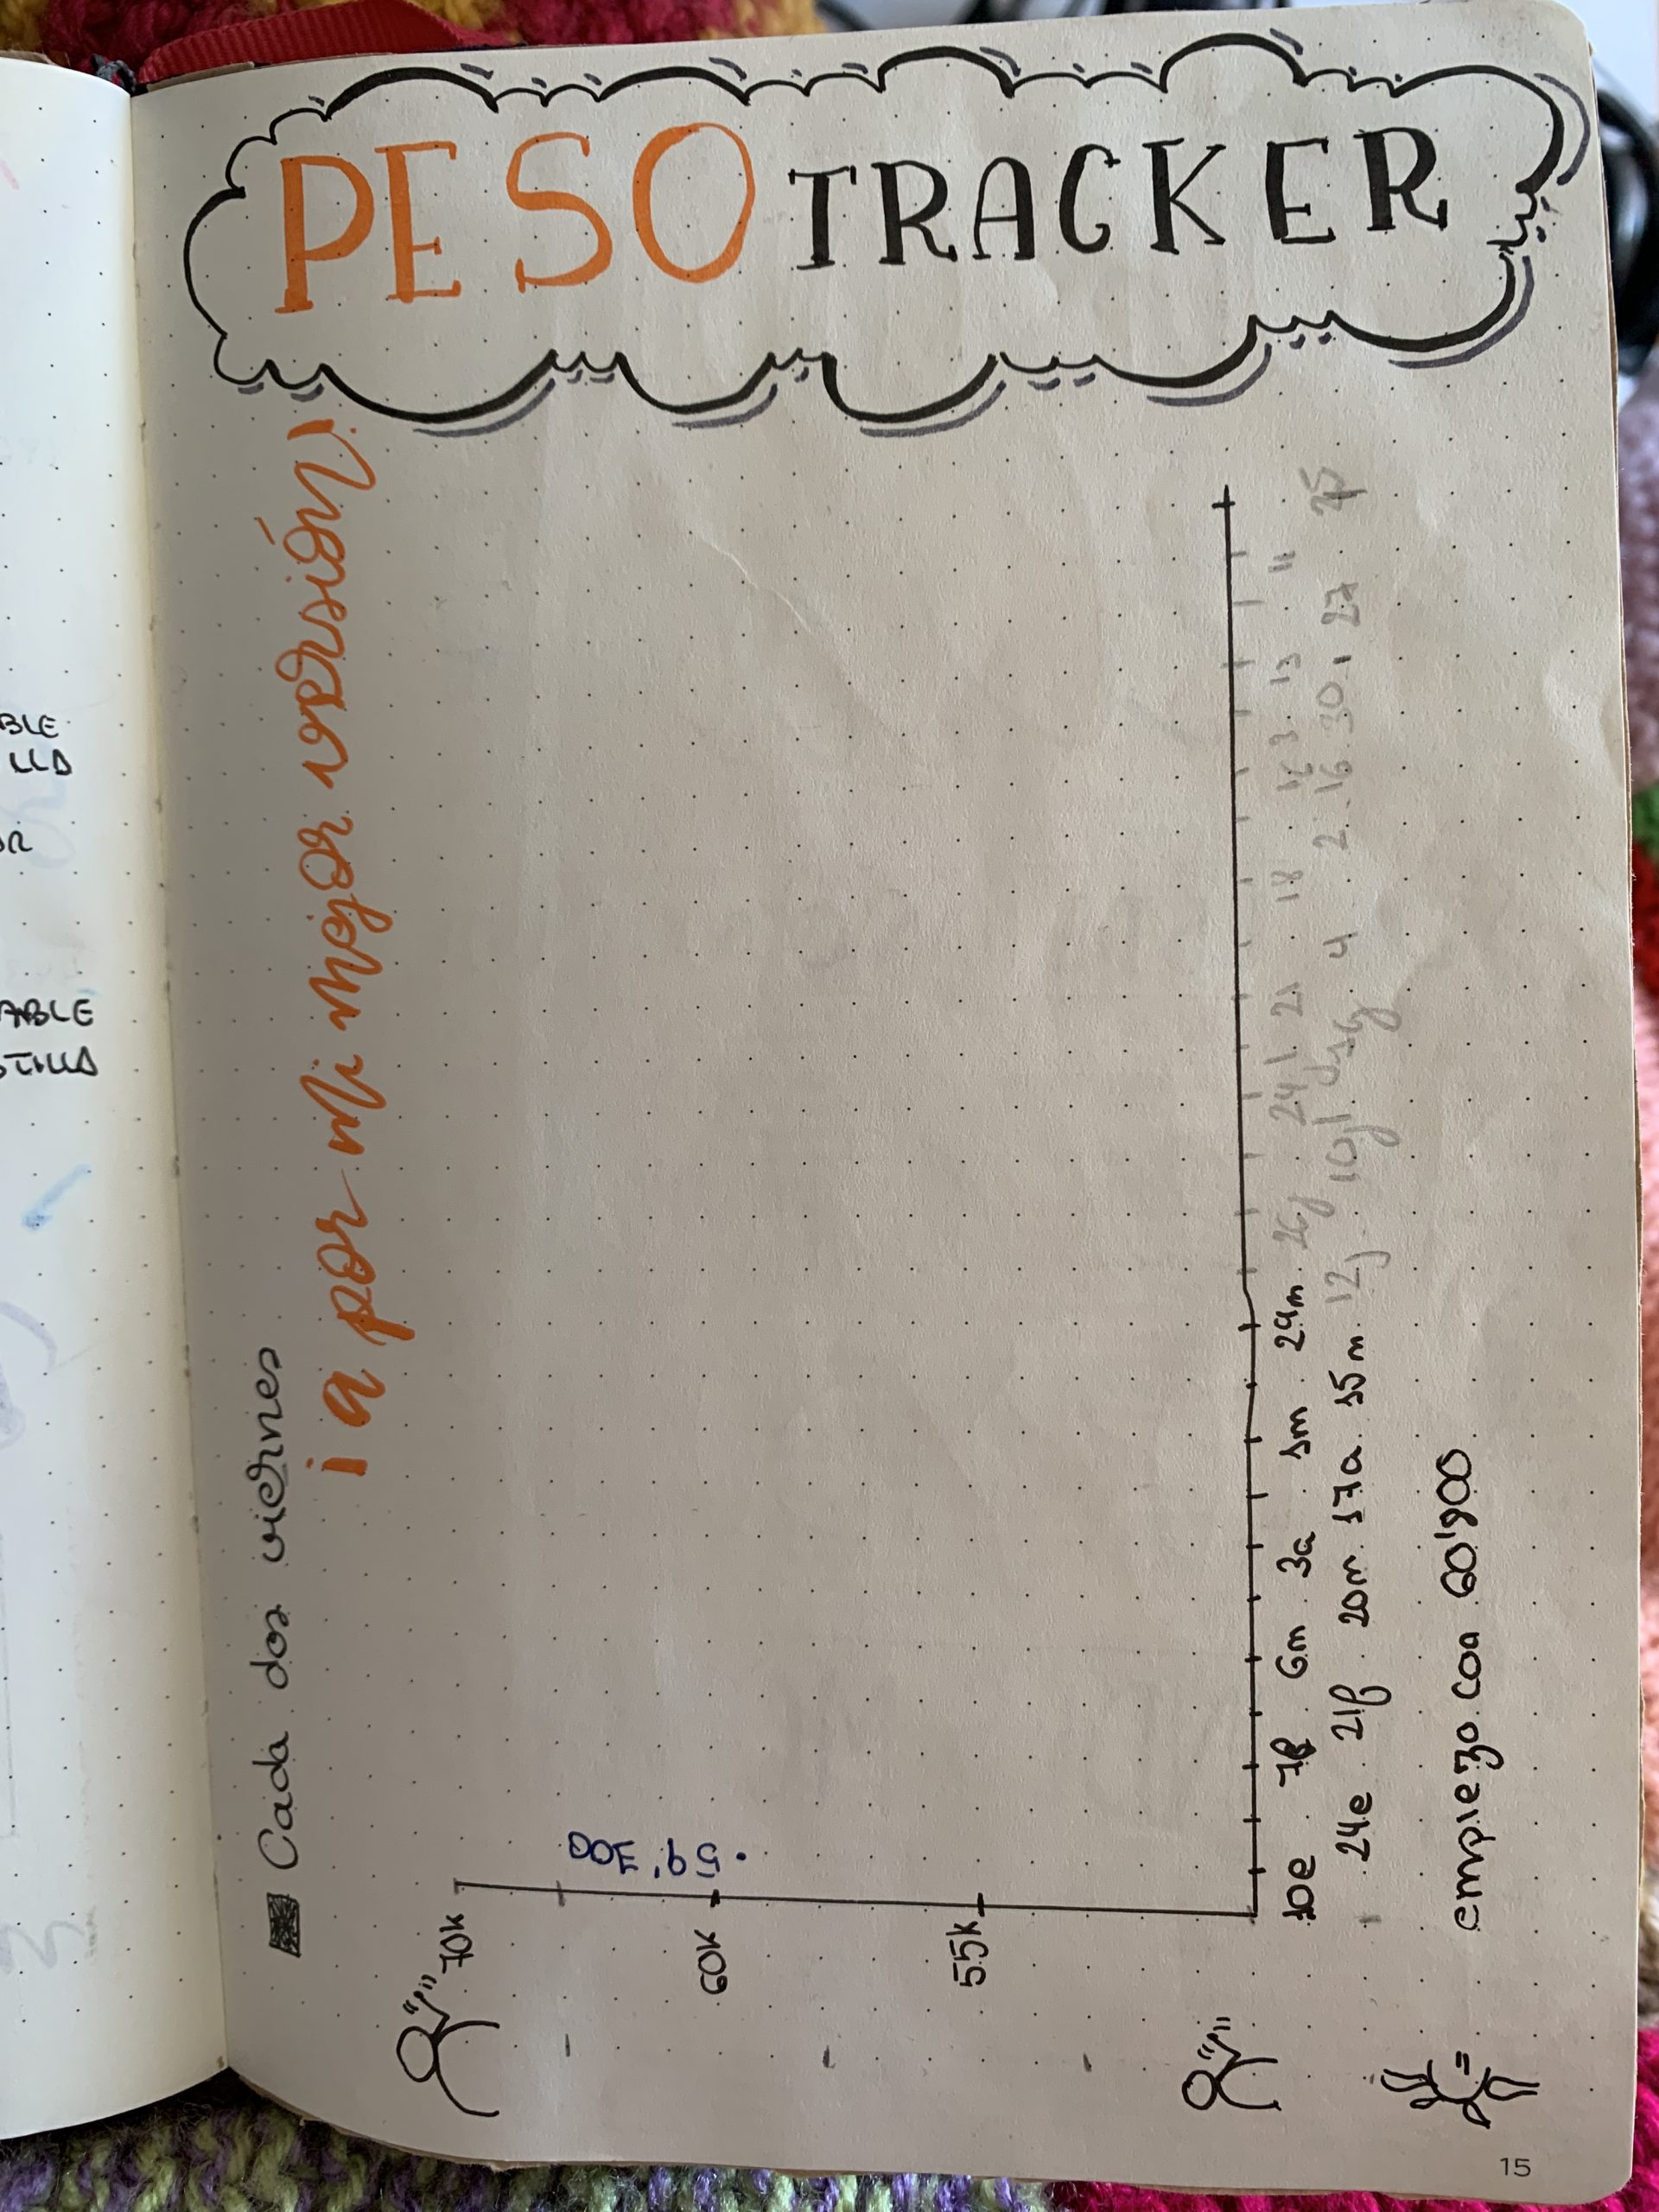 PESO TRACKER
Cada dos viernes
¡a por mi mejor versión!
70K
60K
55K
.59'300
10e 7f 6m 3a 1m 29m 26j 24j 21 18 13 11
24e 21f 20m 17a 15m 12j 10j 4 2 16 30 27
empiezo con 60'900
BLE
LLA
OR
ABLE
STILLA
15